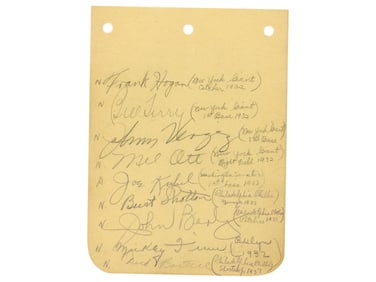 N. Frank Hogan (New York Giant
Catcher 1932
N. Bill Terry (New York Giant)
1st Base 1932
N. Johnny Vergez (New York Giant)
N. Mel Ott (New York Giant
Right Field 1932
A Joe Kuhel (Washington
1st Base 1932
N. Burt Shotton (Philadelphia Phillies
N. John Berly (Philadelphia
N. Mickey Finn (Brooklyn
1932
N. Dick Bartell (Philadelphia Phillies
Shortstop 1932